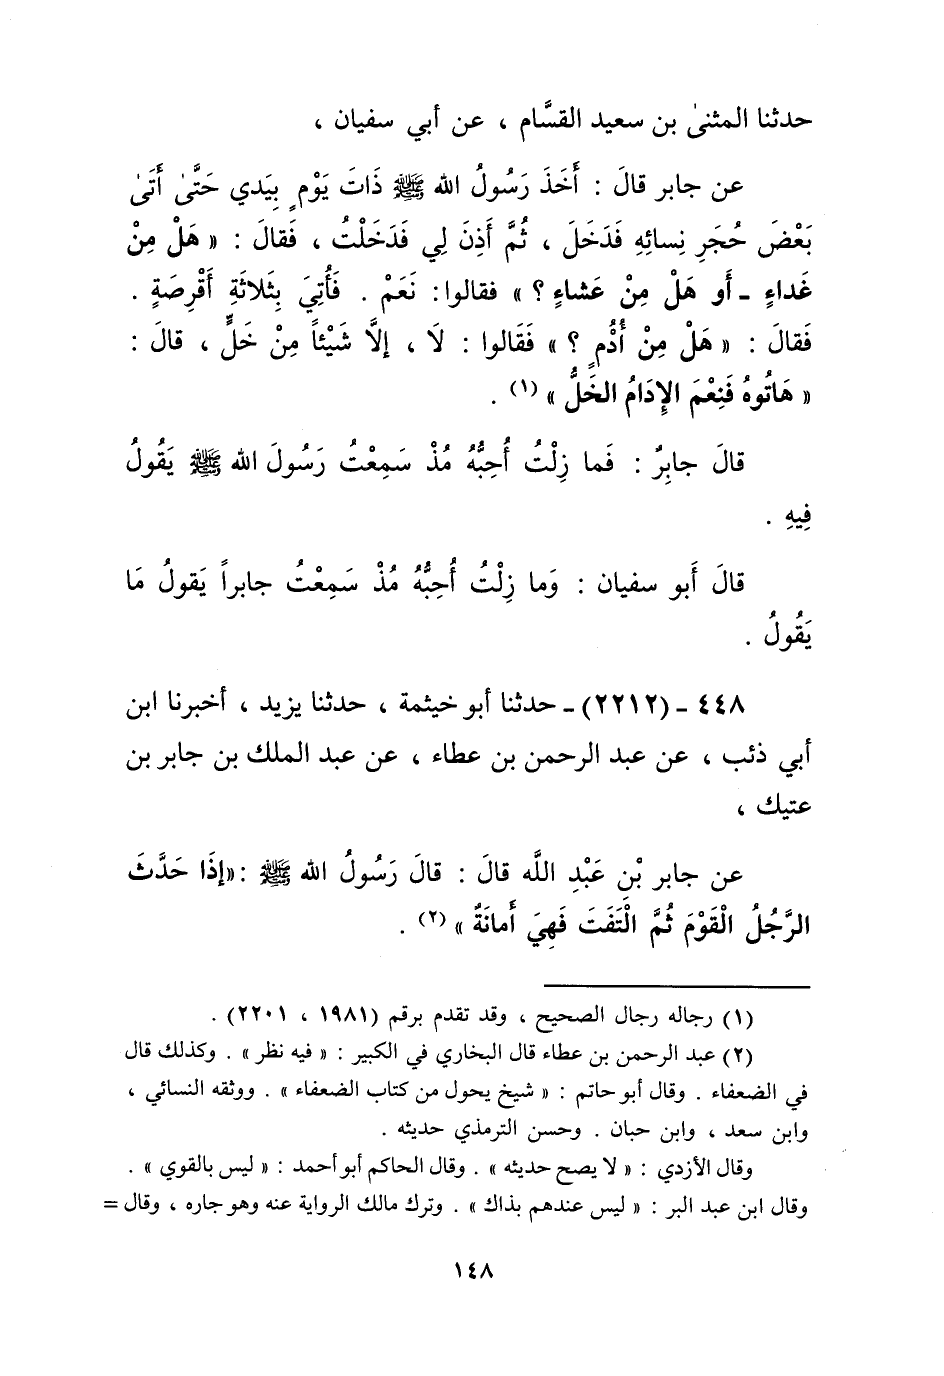 حدثنا المثنىٰ بن سعيد القسَّام ، عن أبي سفيان ،
عن جابر قالَ : أَخَذَ رَسُولُ الله ﷺ ذَاتَ يَوْمٍ بِيَدي حَتَّىٰ أَتَىٰ
بَعْضَ حُجَرِ نِسائِهِ فَدَخَلَ ، ثُمَّ أَذِنَ لِي فَدَخَلْتُ ، فَقالَ : « هَلْ مِنْ
غَداءٍ - أَو هَلْ مِنْ عَشاءٍ ؟ » فقالوا: نَعَمْ . فَأُتِيَ بِثَلاثَةِ أَقْرِصَةٍ .
فَقالَ : « هَلْ مِنْ أُدُمٍ ؟ » فَقَالوا : لَا ، إلَّا شَيْئاً مِنْ خَلٍّ ، قالَ :
« هَاتُوهُ فَنِعْمَ الإِدَامُ الخَلُّ » (١) .
قالَ جابِرُ : فَما زِلْتُ أُحِبُّهُ مُذْ سَمِعْتُ رَسُولَ الله ﷺ يَقُولُ
فِيهِ .
قالَ أَبو سفيان : وَما زِلْتُ أُحِبُّهُ مُذْ سَمِعْتُ جابراً يَقولُ مَا
يَقُولُ .
٤٤٨ - (٢٢١٢) - حدثنا أبو خيثمة ، حدثنا يزيد ، أخبرنا ابن
أبي ذئب ، عن عبد الرحمن بن عطاء ، عن عبد الملك بن جابر بن
عتيك ،
عن جابر بْنِ عَبْدِ اللَّه قالَ : قالَ رَسُولُ الله ﷺ :«إذَا حَدَّثَ
الرَّجُلُ الْقَوْمَ ثُمَّ الْتَفَتَ فَهِيَ أَمانَةٌ » (٢) .
(١) رجاله رجال الصحيح ، وقد تقدم برقم (١٩٨١ ، ٢٢٠١) .
(٢) عبد الرحمن بن عطاء قال البخاري في الكبير : « فيه نظر » . وكذلك قال
في الضعفاء . وقال أبو حاتم : « شيخ يحول من كتاب الضعفاء » . ووثقه النسائي ،
وابن سعد ، وابن حبان . وحسن الترمذي حديثه .
وقال الأزدي : « لا يصح حديثه » . وقال الحاكم أبو أحمد : « ليس بالقوي » .
وقال ابن عبد البر : « ليس عندهم بذاك » . وترك مالك الرواية عنه وهو جاره ، وقال =
١٤٨